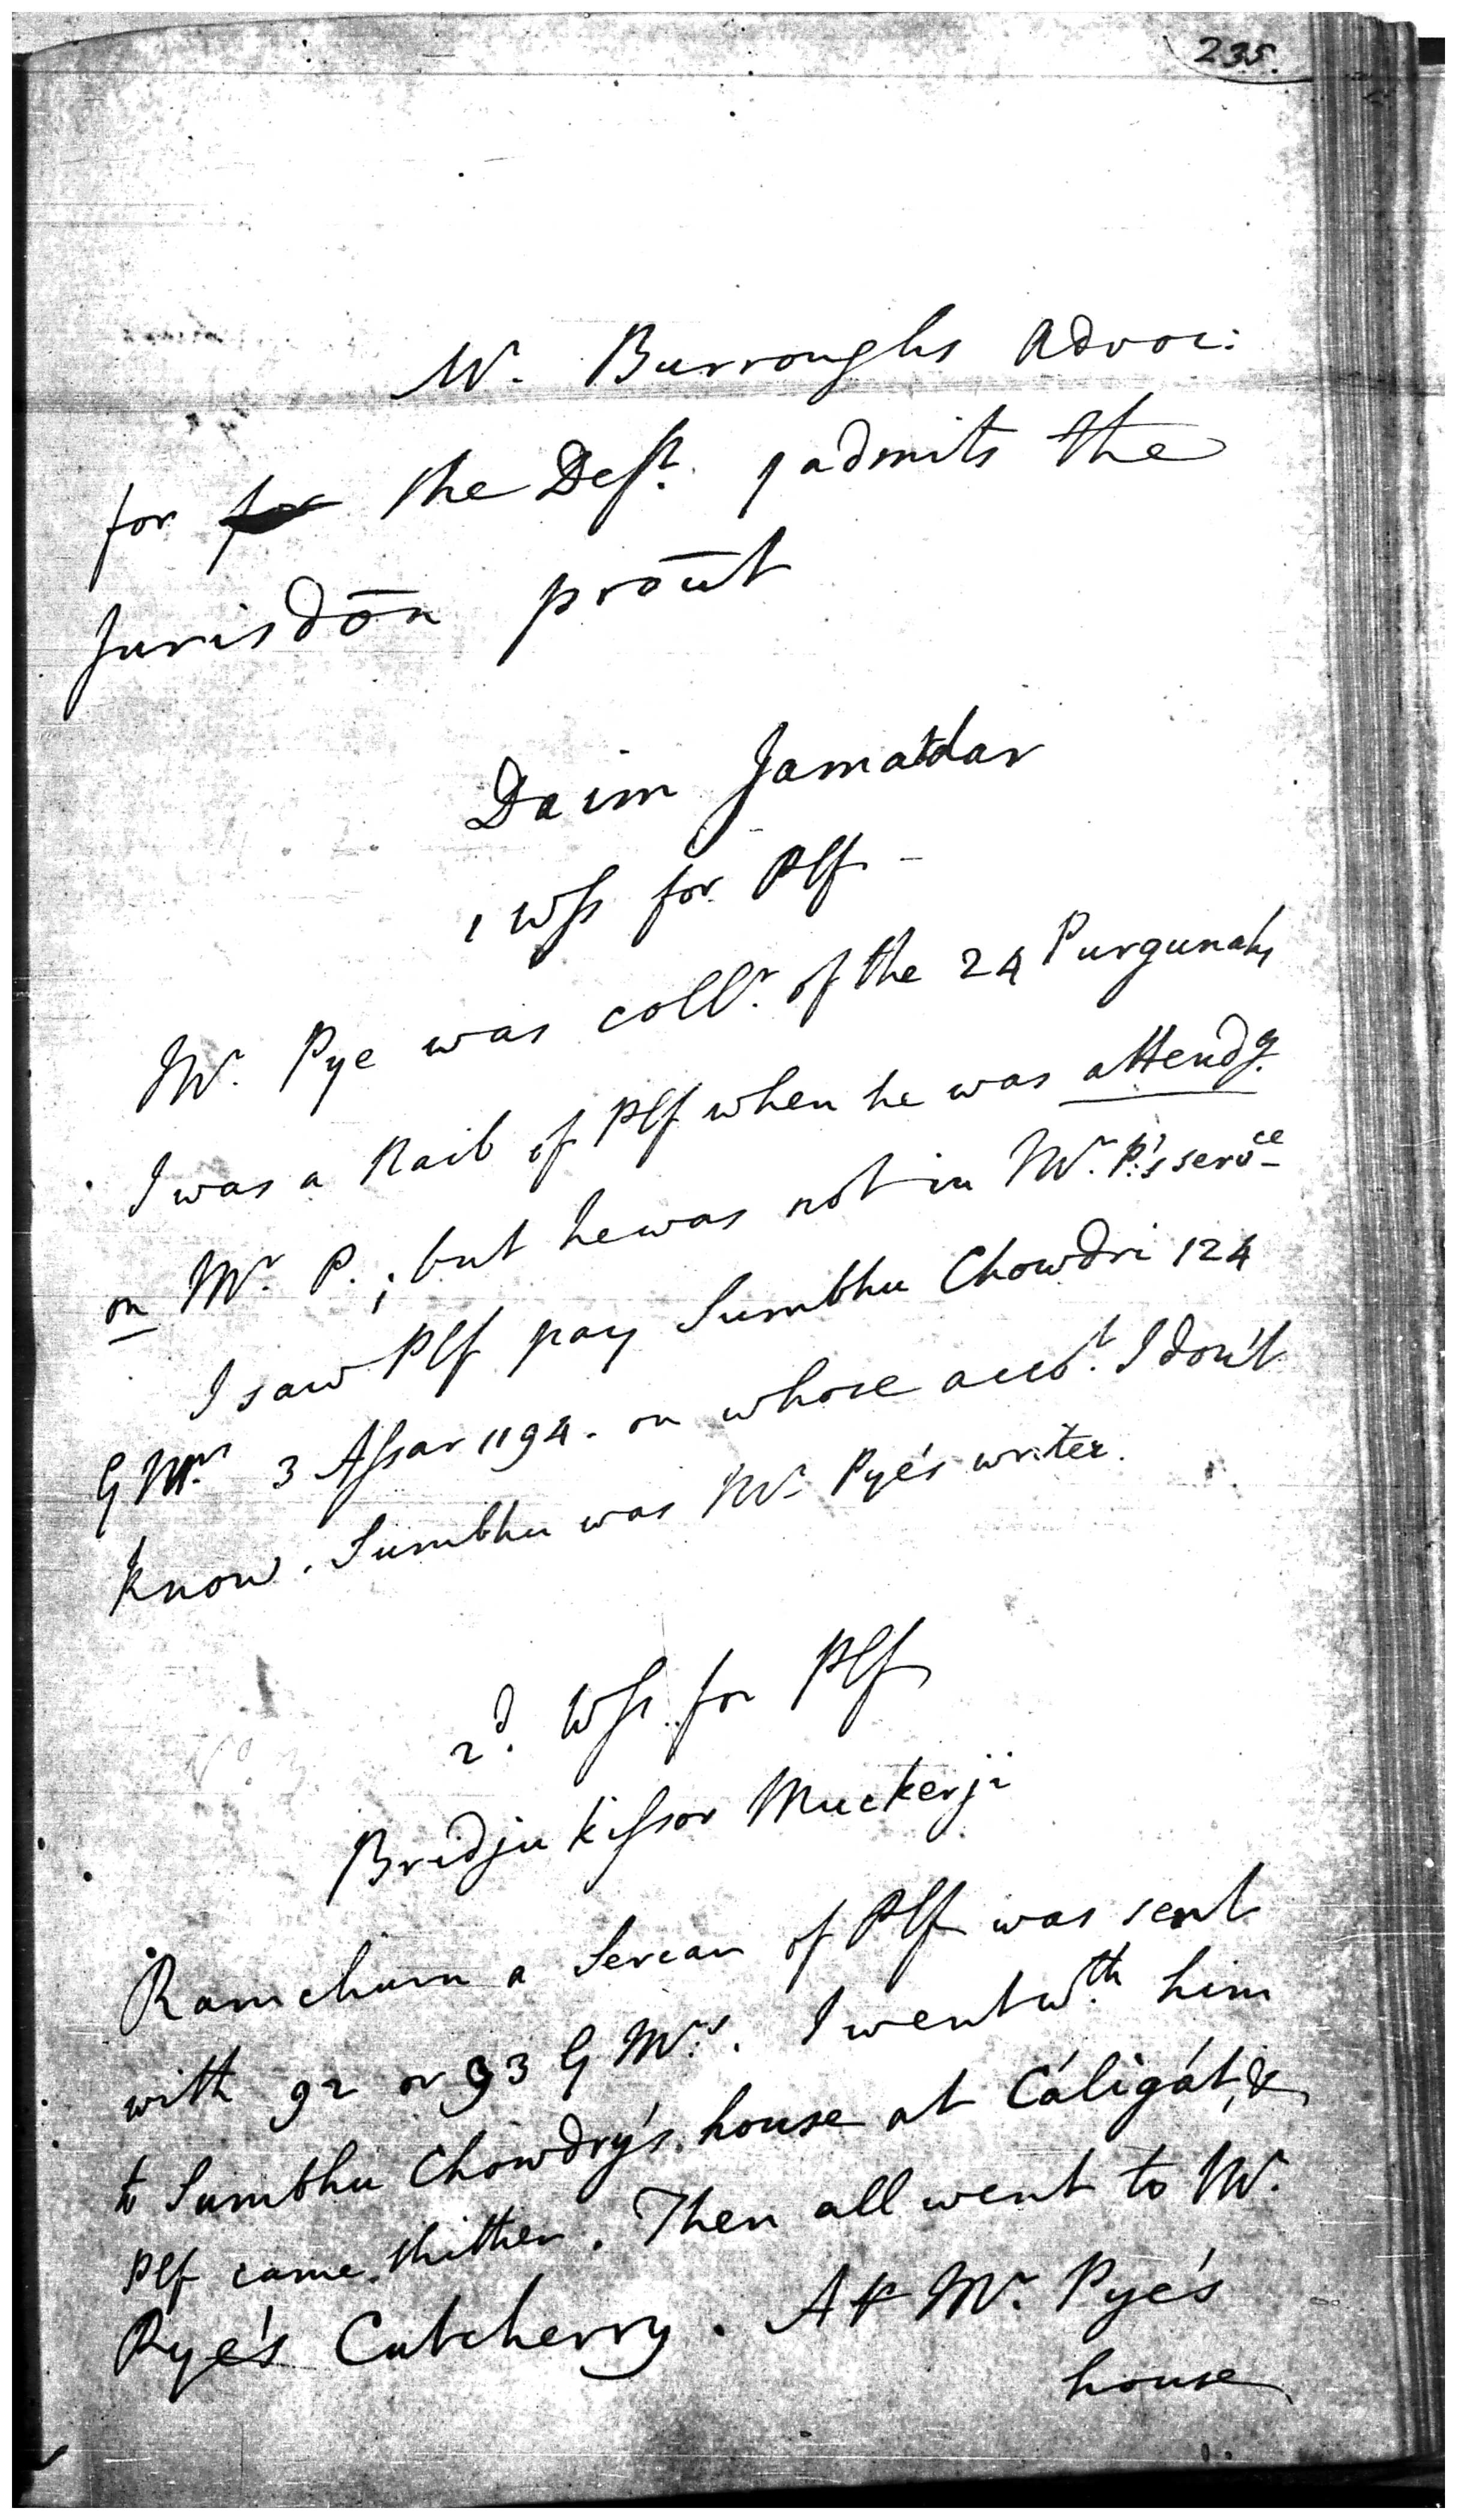 235.
Mr. Burroughs Advoc:
for for the Deft. admits the
Jurisdōn proūt
Daim Jamatdar
1 Wss for Plf -
Mr. Pye was collr. of the 24 Purgunahs
I was a Naib of Plf when he was attendg.
on Mr. P.; but he was not in Mr. P.'s servce
I saw Plf pay Sumbhu Chowdri 124
G Mrs 3 Assar 1194. on whose acct. I don't
know. Sumbhu was Mr. Pye's writer.
2d. Wss. for Plf
Bridju Kissor Muckerji
Ramchurn a Sercar of Plf was sent
with 92 or 93 G Mrs. I went wth. him
to Sumbhu Chowdry's house at Cáligát, &
Plf came thither. Then all went to Mr.
Pye's Cutcherry. At Mr. Pye's
house